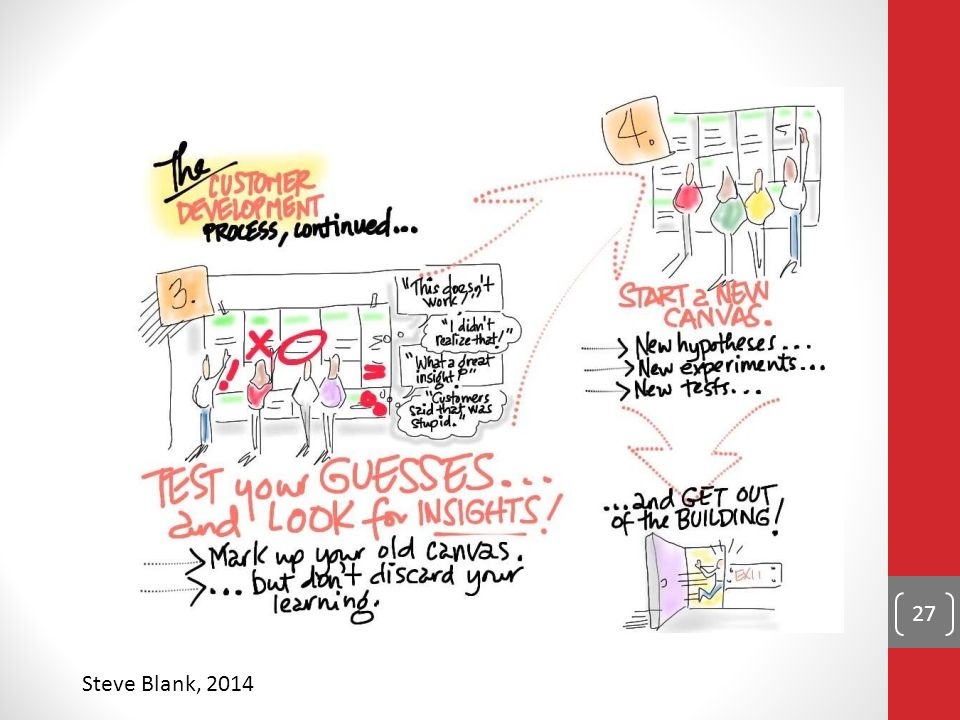 The
CUSTOMER
DEVELOPMENT
PROCESS, continued...
3.
"This doesn't
work!"
"I didn't
realize that!"
"What a great
insight!"
"Customers
said that was
stupid."
TEST your GUESSES...
and LOOK for INSIGHTS!
Mark up your old canvas.
... but don't discard your
learning.
4.
START a NEW
CANVAS.
New hypotheses...
New experiments...
New tests...
...and GET OUT
of the BUILDING!
EXIT
27
Steve Blank, 2014